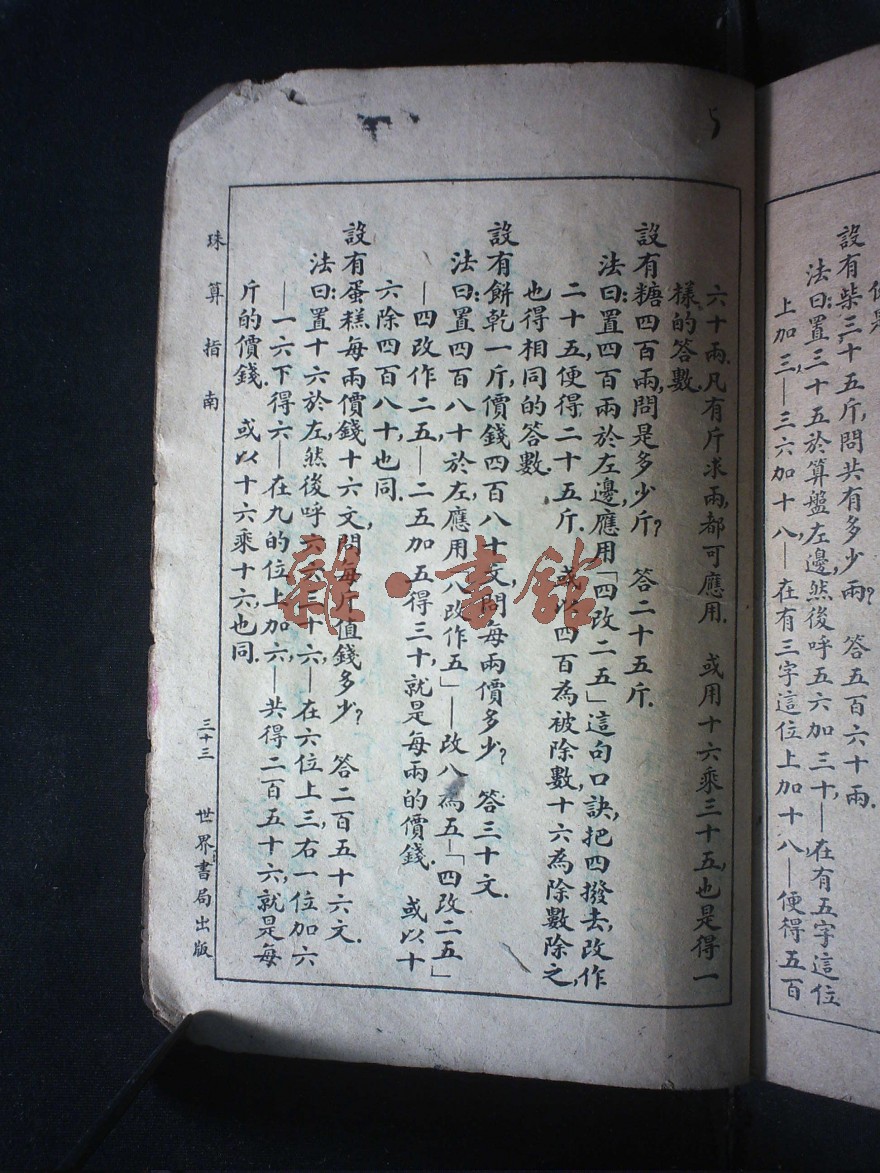 你是
設有柴三十五斤,問共有多少兩?答五百六十兩.
法曰:置三十五於算盤左邊,然後呼五六加三十,—在有五字這位
上加三,—三六加十八—在有三字這位上加十八—便得五百
六十兩.凡有斤求兩,都可應用.或用十六乘三十五,也是得一
樣的答數.
設有糖四百兩,問是多少斤?答二十五斤.
法曰:置四百兩於左邊,應用「四改二五」這句口訣,把四撥去,改作
二十五,便得二十五斤.或以四百為被除數,十六為除數除之,
也得相同的答數.
設有餅乾一斤,價錢四百八十文,問每兩價多少?答三十文.
法曰:置四百八十於左,應用「八改作五」—改八為五—「四改二五」
—四改作二五—二五加五得三十,就是每兩的價錢.或以十
六除四百八十,也同.
設有蛋糕每兩價錢十六文,問每斤值錢多少?答二百五十六文.
法曰:置十六於左,然後呼六六三十六—在六位上三右一位加六
—一六下得六—在九的位上加六—共得二百五十六,就是每
斤的價錢.或以十六乘十六,也同.
珠算指南
三十三
世界書局出版
雜·書館